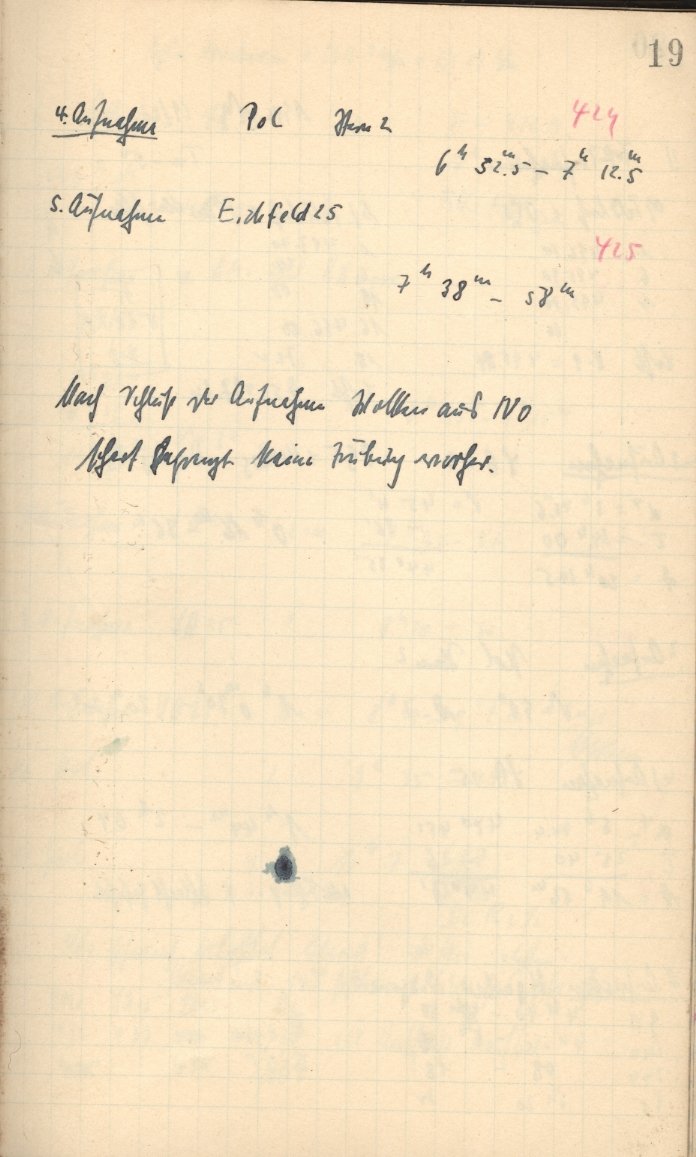 19
4. Aufnahme Pol Stern 2 424
6h 52m.5 – 7h 12m.5
5. Aufnahme Eichfeld 25
425
7h 38m – 58m
Nach Schluß der Aufnahmen Wolken aus NO
scharf begrenzt keine Trübung vorher.